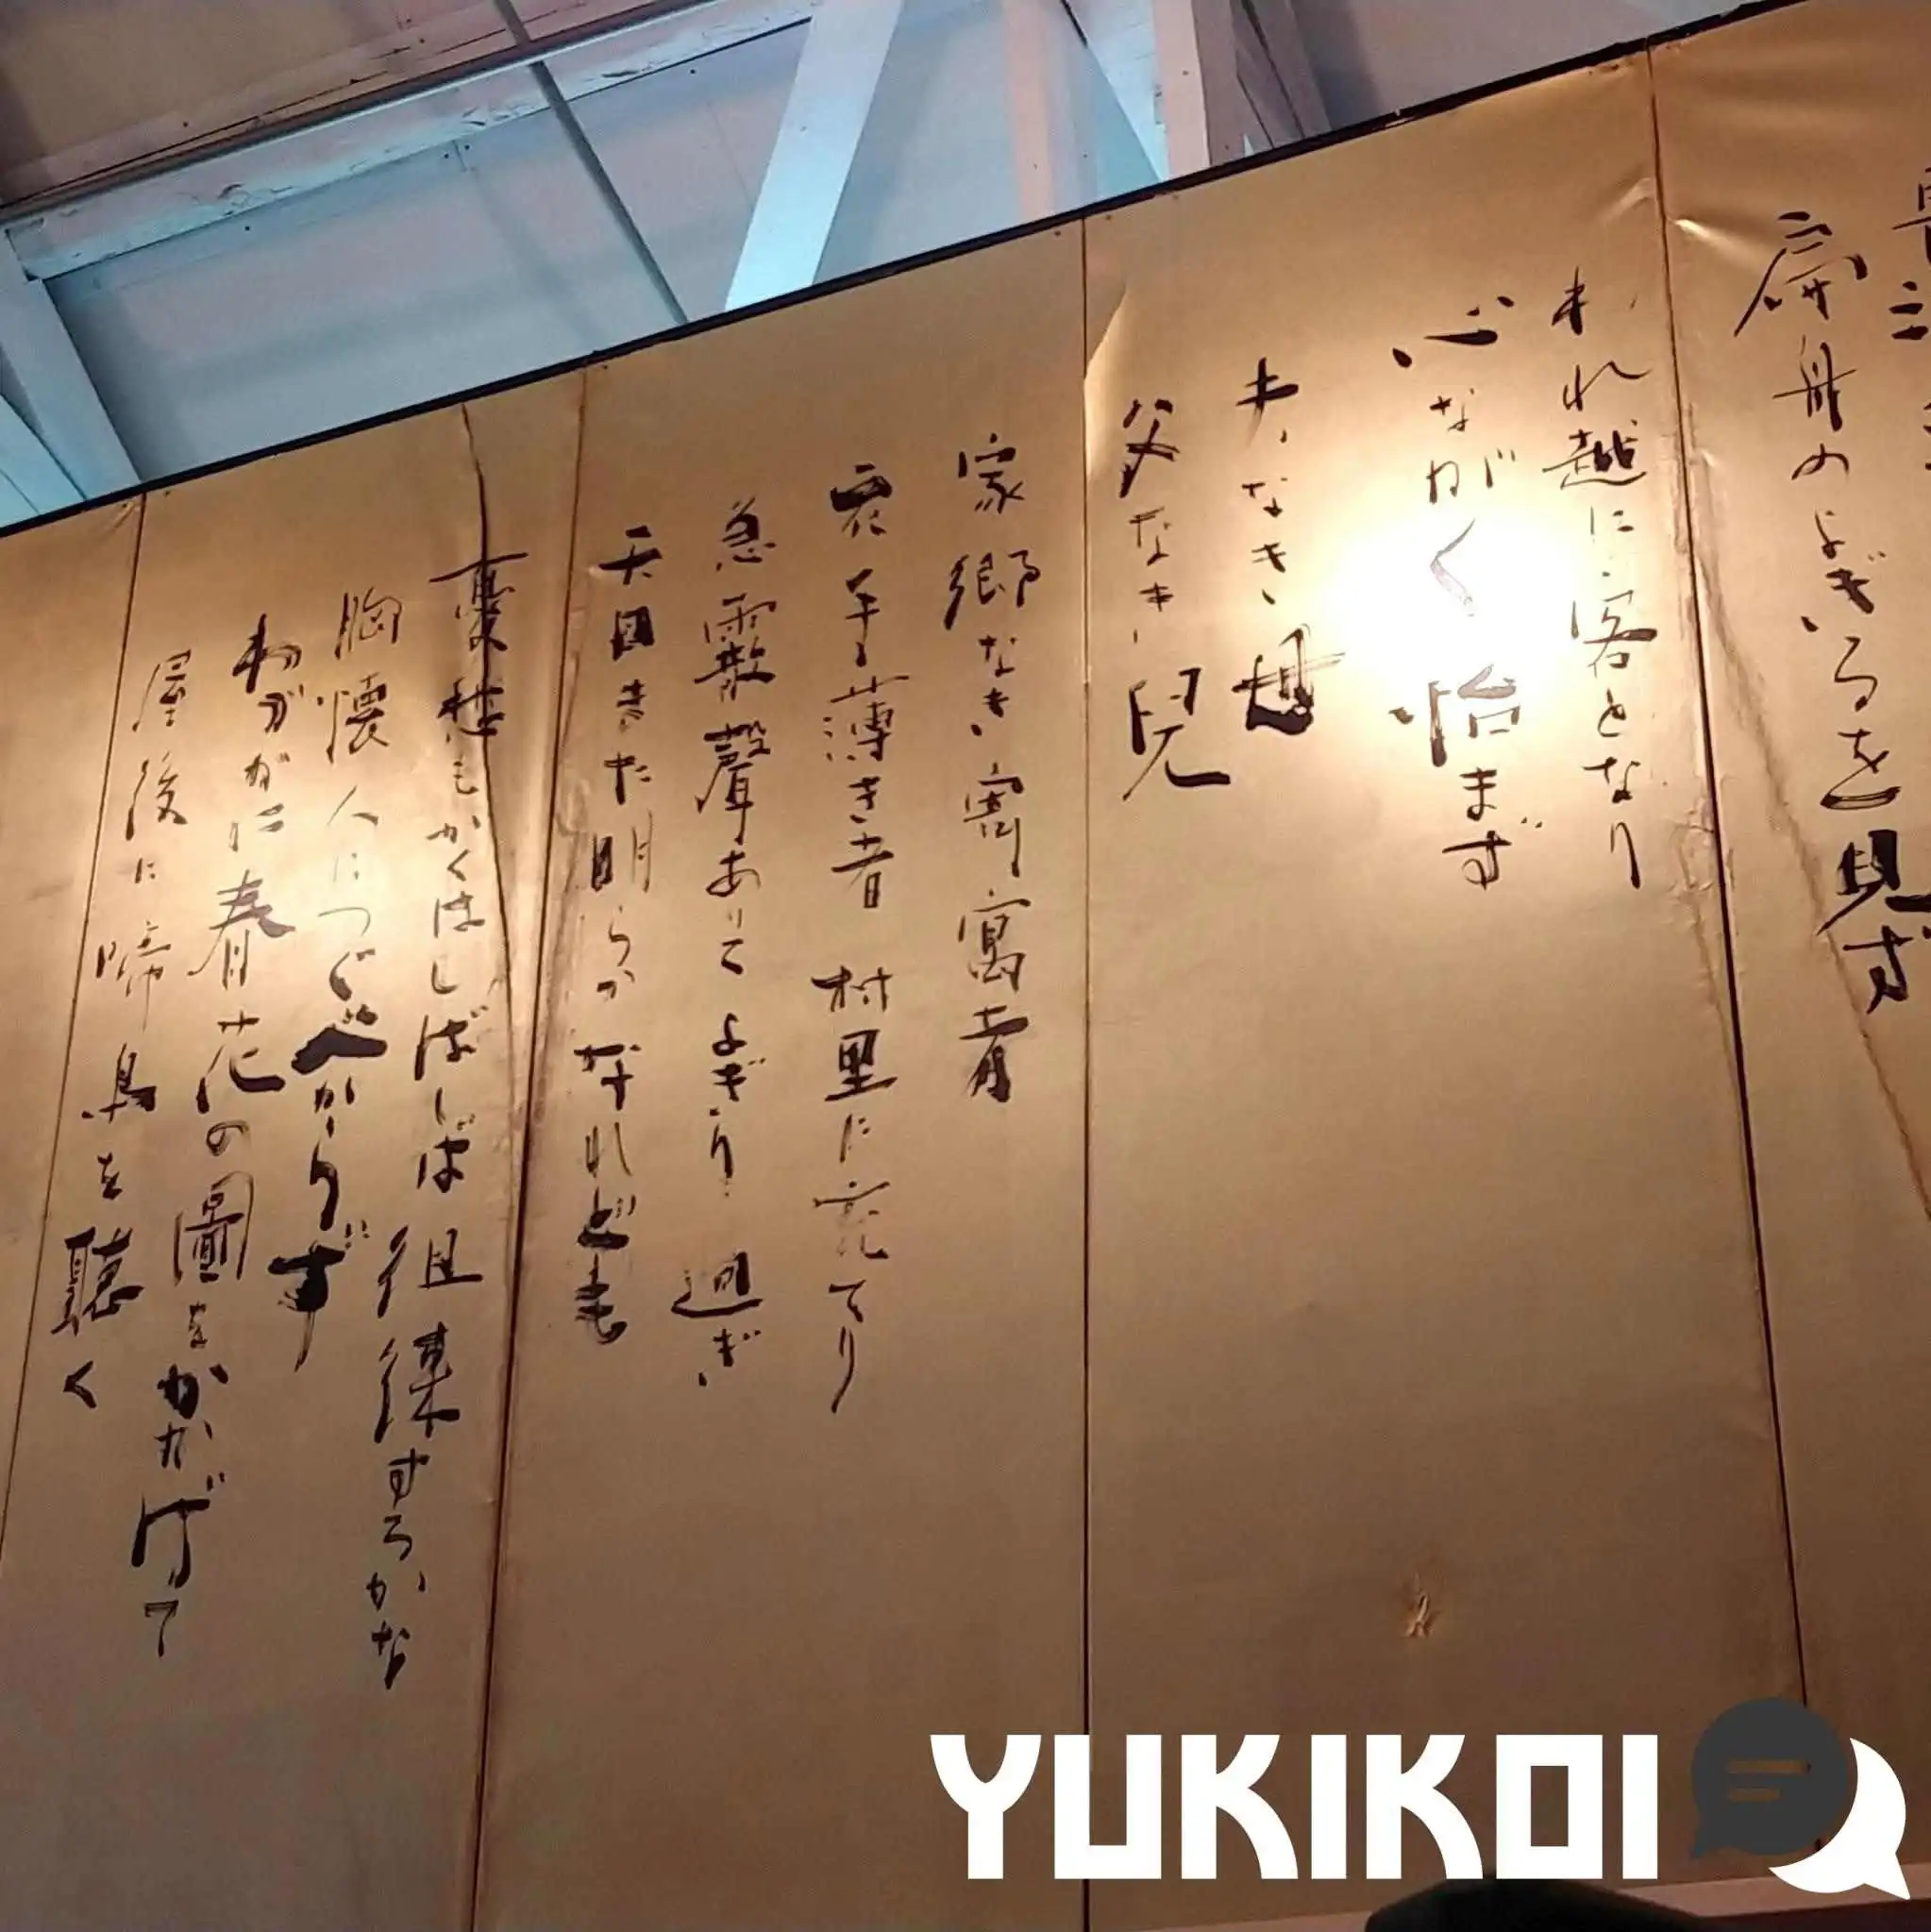 扁舟のよぎるを見ず
われ越に客となり
心ながく怡まず
夫なき母
父なき兒
家郷なき寄寓者
衣手薄き者 村里に充てり
急霰聲ありて よぎり 過ぎ
天日また明らかなれども
憂愁もかくはしばしば 徂徠するかな
胸懷人につぐべからず
わががに春花の圖をかかげて
屋後に啼鳥を聽く
YUKIKOI